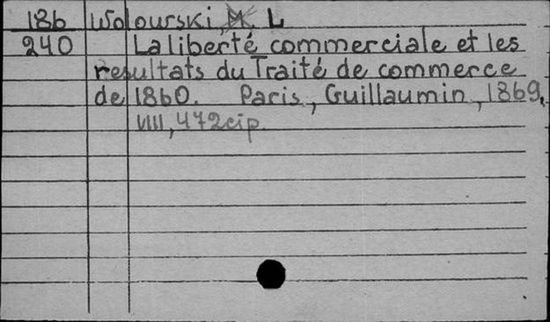 186 Wolourski, L
240 La liberté commerciale et les
resultats du Traité de commerce
de 1860. Paris, Guillaumin, 1869,
VIII, 472 cip.